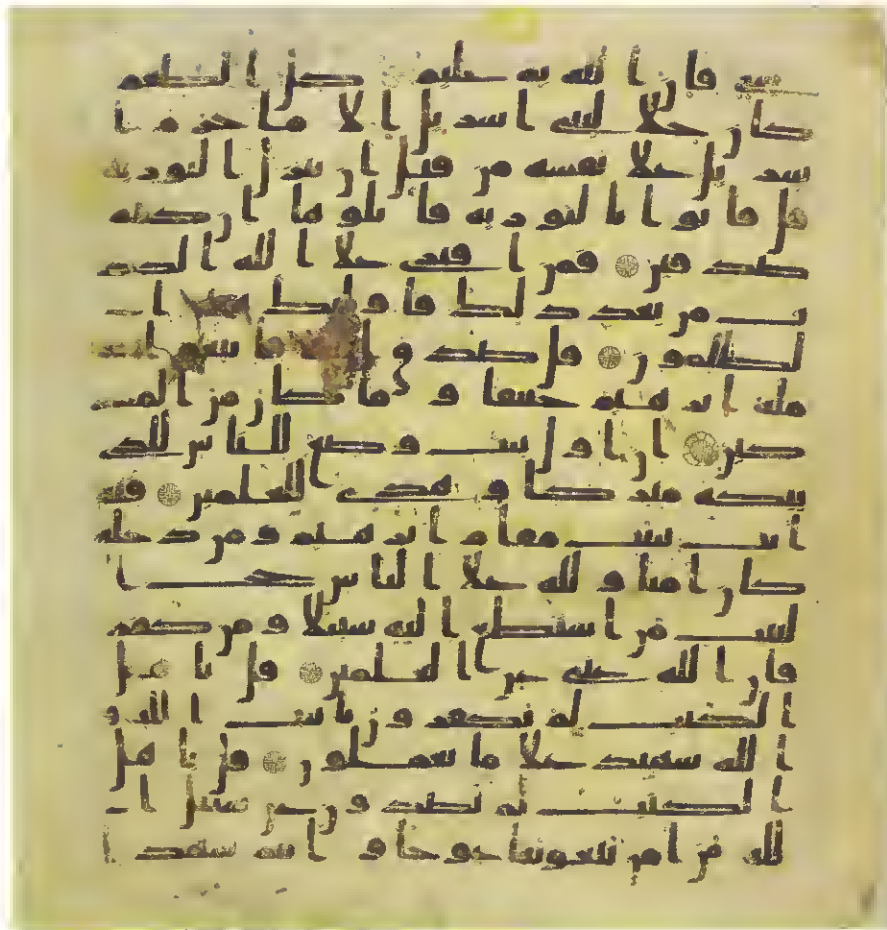 شى فان الله به عليم كل الطعم
كان حلا لبنى اسريل الا ما حرم ا
سريل على نفسه من قبل ان تنزل التورية
قل فاتوا بالتورية فاتلوها ان كنتم
صدقين فمن افترى على الله الكذ
ب من بعد ذلك فاولئك هم ا
لظلمون قل صدق الله فاتبعوا
ملة ابرهيم حنيفا وما كان من المشر
كين ان اول بيت وضع للناس للذى
ببكة مبركا وهدى للعلمين فيه
ايت بينت مقام ابرهيم ومن دخله
كان امنا ولله على الناس حج ا
لبيت من استطاع اليه سبيلا ومن كفر
فان الله غنى عن العلمين قل ياهل
الكتب لم تكفرون بايت الله و
الله شهيد على ما تعملون قل ياهل
الكتب لم تصدون عن سبيل ا
لله من امن تبغونها عوجا وانتم شهدا